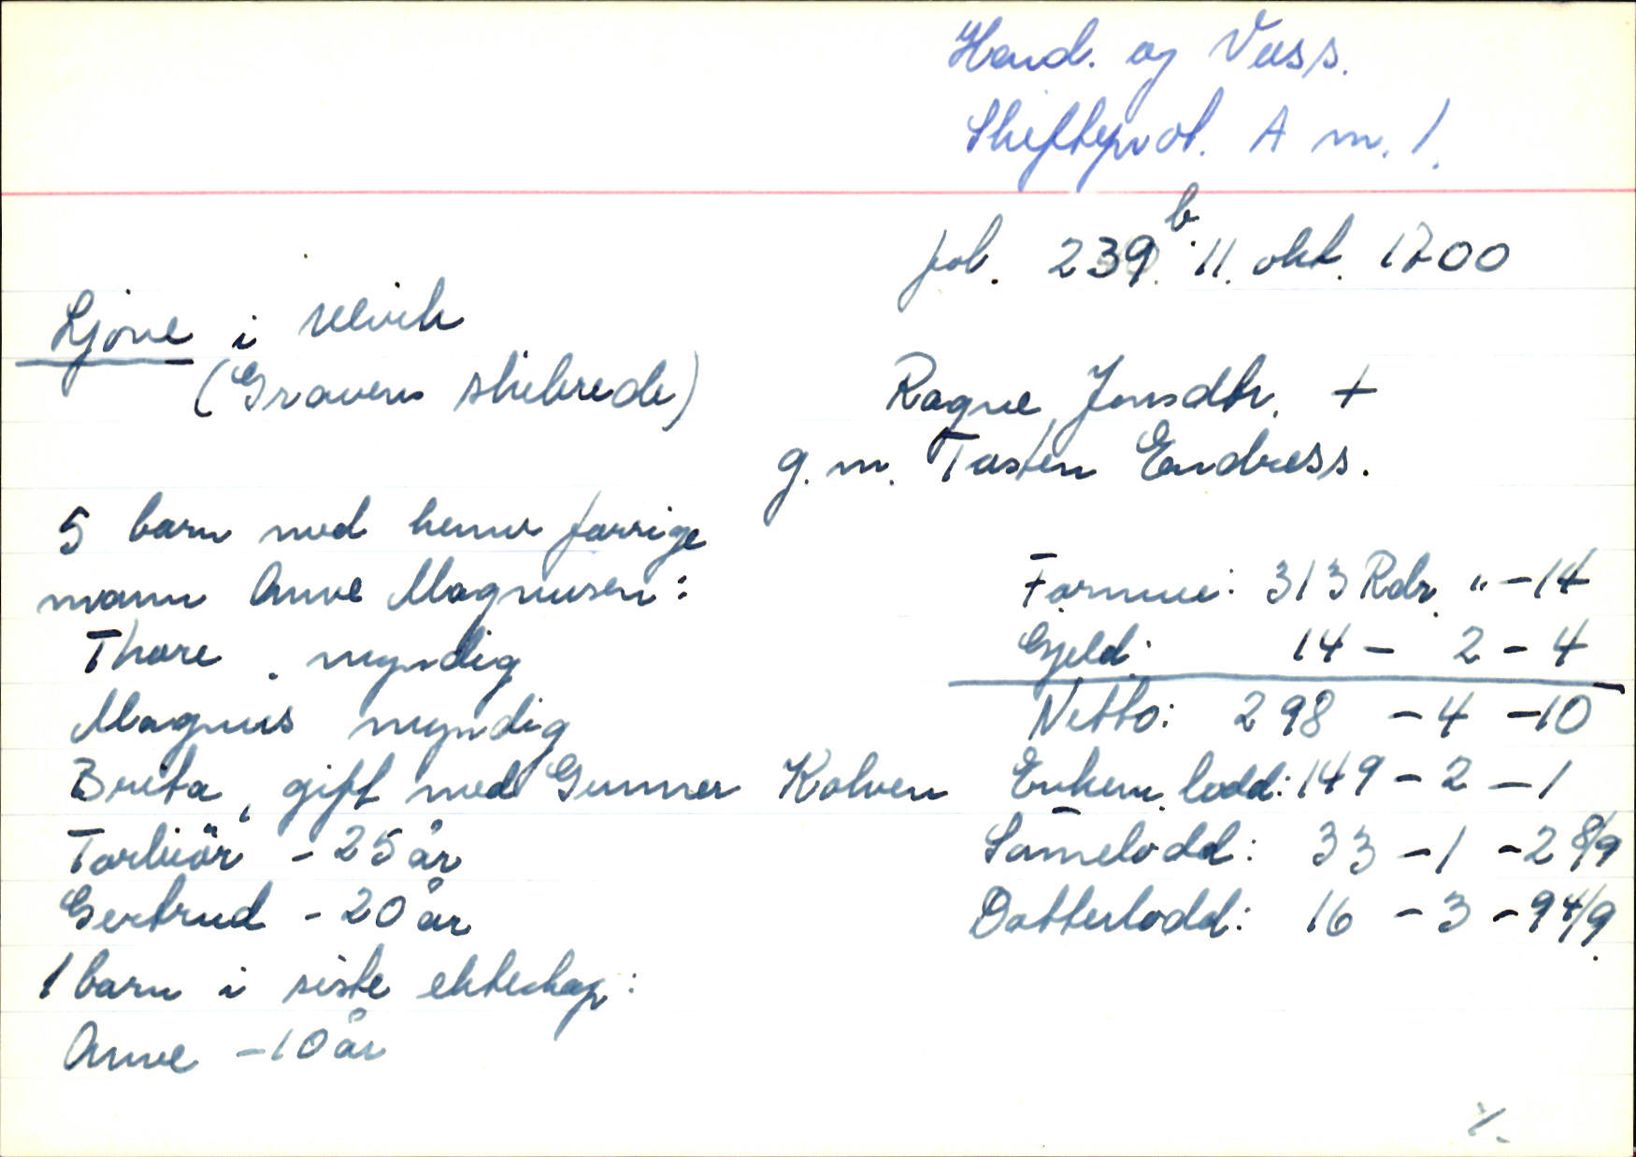 Hard. og Voss.
Skifteprot. A nr. 1.
fol. 239b. 11. okt. 1700
Ljone i Ulvik
(Gravens skibrede)
Ragne Jonsdtr. +
g. m. Tosten Endress.
5 barn med hennes forrige
mann Anve Magnusen:
Thore . myndig
Magnus myndig
Brita, gift med Gunnar Kolven
Torbiör - 25 år
Gertrud - 20 år
1 barn i siste ekteskap:
Anve - 10 år
Formue: 313 Rdr. " - 14
Gjeld: 14 - 2 - 4
Netto: 298 - 4 - 10
Enkem. lodd: 149 - 2 - 1
Sønnelodd: 33 - 1 - 2 8/9
Datterlodd: 16 - 3 - 9 4/9.